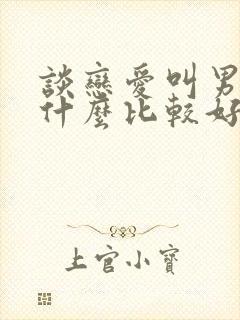 談戀愛叫男
什麼比較好
上官小寶